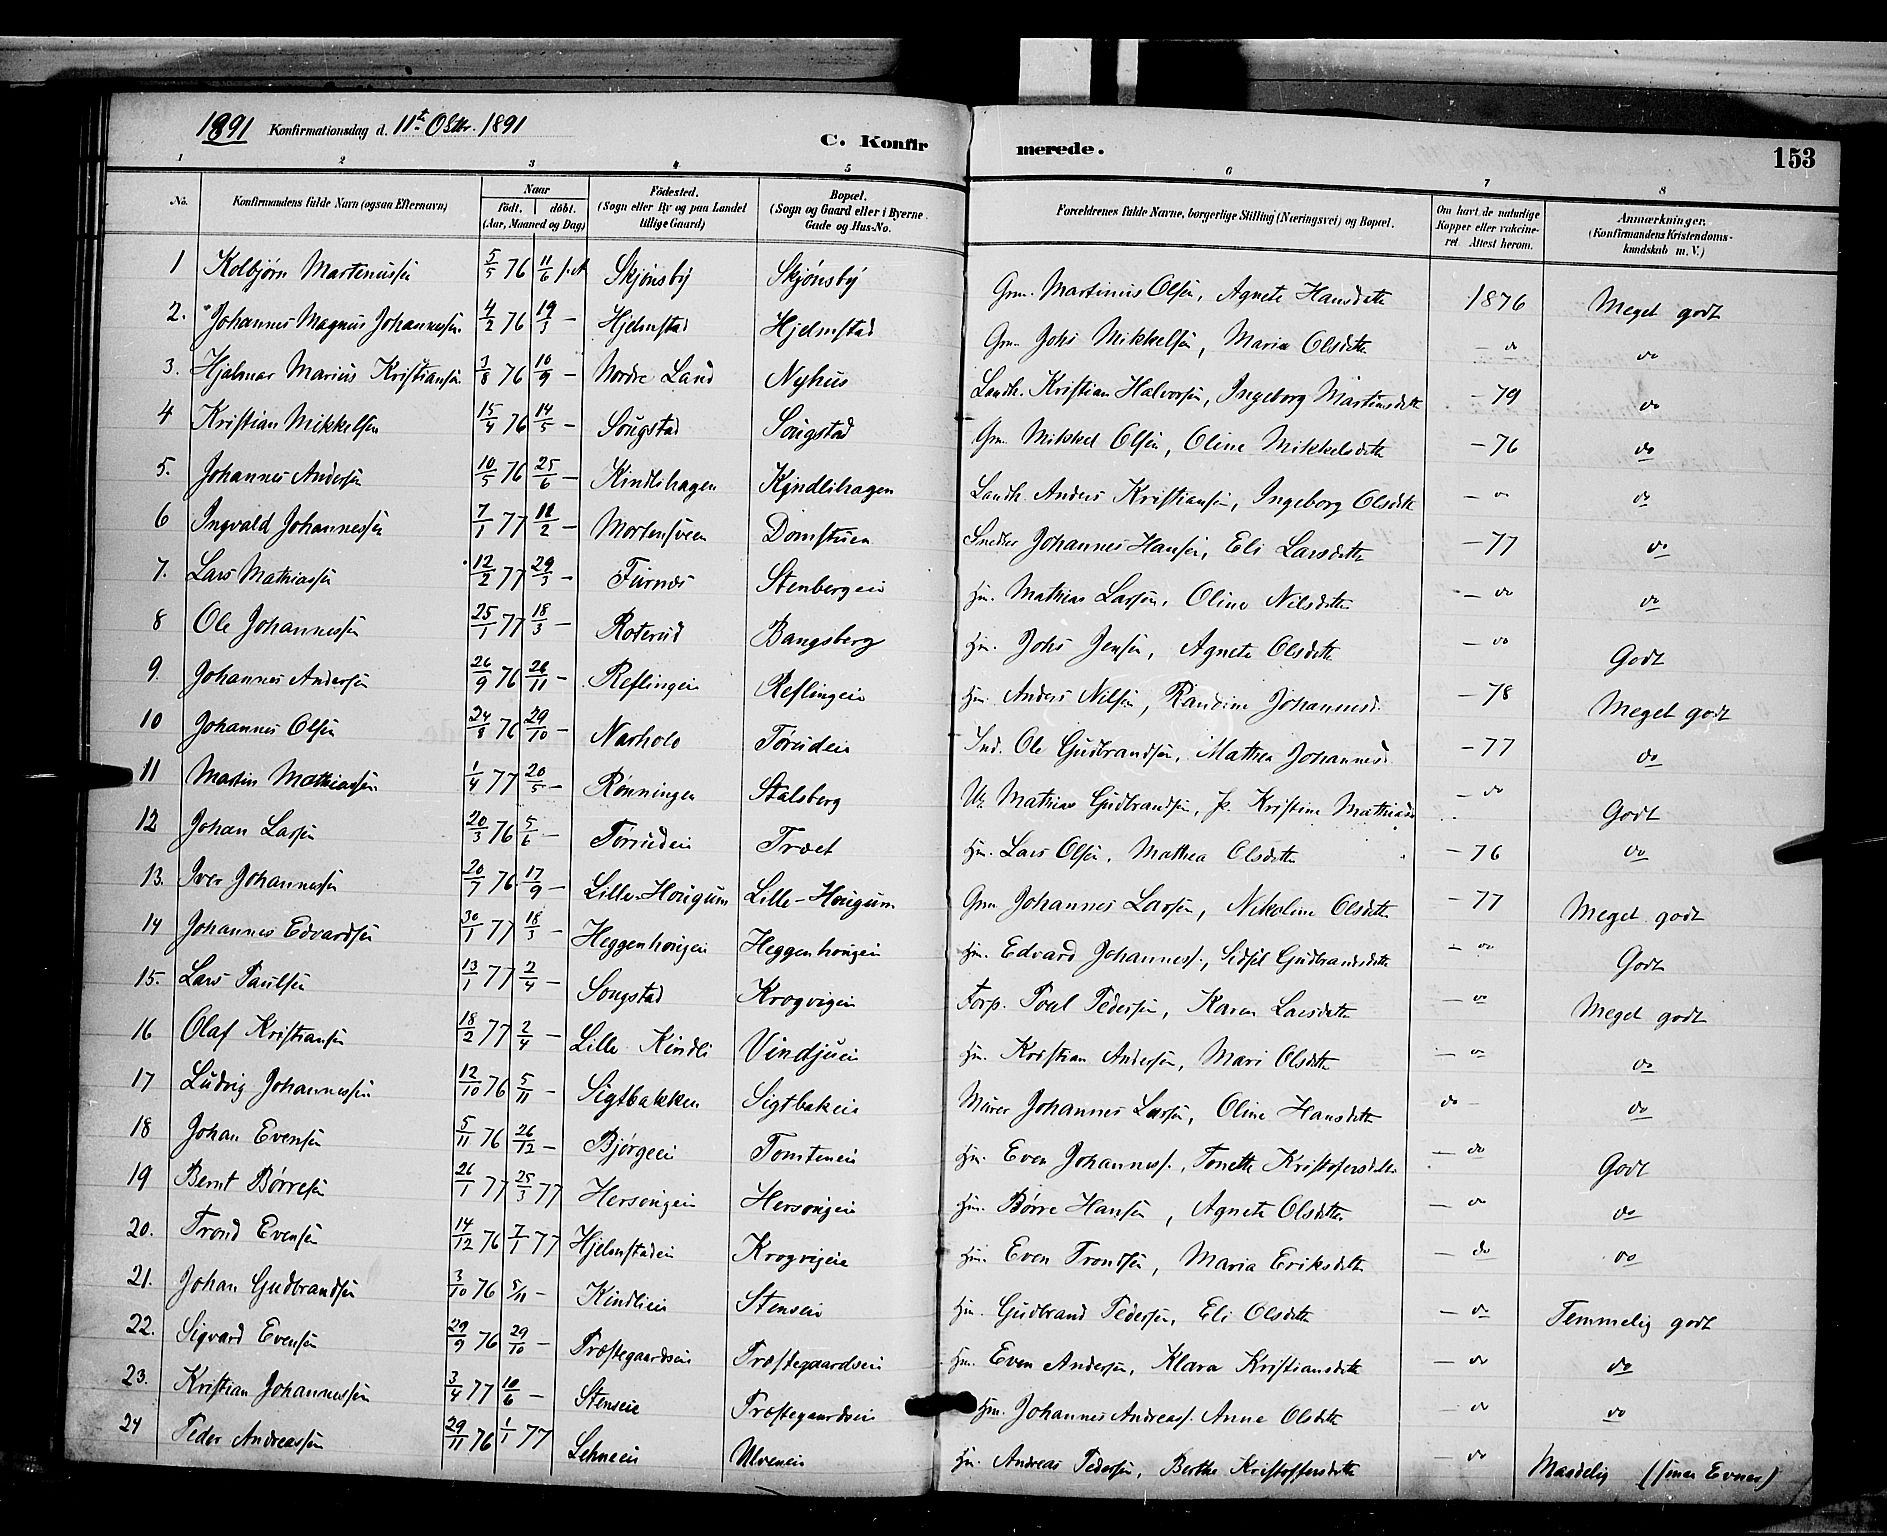 1891 Konfirmationsdag d. 11te Oktbr. 1891
C. Konfirmerede.
153
1 2 3 4 5 6 7 8
No. | Konfirmandens fulde Navn (ogsaa Efternavn) | Naar født. døbt. (Aar, Maaned og Dag) | Fødested. (Sogn eller By og paa Landet tillige Gaard) | Bopæl. (Sogn og Gaard eller i Byerne Gade og Hus-No. | Forældrenes fulde Navne, borgerlige Stilling (Næringsvei) og Bopæl. | Om havt de naturlige Kopper eller vakcineret. Attest herom. | Anmærkninger. (Konfirmandens Kristendomskundskab m. V.)
1 Kolbjørn Martinussen 5/5 76 11/6 Skjønsby Skjønsby Grm. Martinius Olsen, Agnete Hansdatter 1876 Meget godt
2. Johannes Magnus Johannessen 4/2 76 19/3 — Hjelmstad Hjelmstad Grm. Johs Mikkelsen, Maria Olsdatter — do do
3. Hjalmar Marius Kristiansen 3/8 76 10/9 — Nordre Land Nyhus Landh. Kristian Halvorsen, Ingeborg Martinsdatter — 79 do
4 Kristian Mikkelsen 15/4 76 14/5 — Sougstad Sougstad Grm. Mikkel Olsen, Oline Mikkelsdatter — 76 do
5. Johannes Andersen 10/5 76 25/6 — Kindlihagen Kindlihagen Landh. Anders Kristiansen, Ingeborg Olsdatter — do do
6 Ingvald Johannessen 7/1 77 11/2 — Mortensveen Domstuen Snedker Johannes Hansen, Eli Larsdatter — 77 do
7. Lars Mathiassen 12/2 77 29/3 — Furnes Stenbergeie Hm. Mathias Larsen, Oline Nilsdatter — do do
8 Ole Johannessen 25/1 77 18/3 — Roterud Bangsberg Hm. Johs Jensen, Agnete Olsdatter — do Godt
9. Johannes Andersen 26/9 76 26/11 — Reflingeie Reflingeie Hm. Anders Nilsen, Randine Johannesd. — 78 Meget godt
10 Johannes Olsen 24/8 76 29/10 — Narholo Tørudeie Ind. Ole Gudbrandsen, Mathea Johannesd — 77 do
11 Martin Mathiassen 1/4 77 20/5 — Rønningen Stalsberg Uk. Mathias Gudbrandsen, P. Kristine Mathiasd — do Godt
12 Johan Larsen 20/3 76 5/6 — Tørudeie Træet Hm. Lars Olsen, Mathea Olsdatter — 76 do
13. Iver Johannessen 20/7 76 17/9 — Lille-Hougum Lille-Hougum Grm Johannes Larsen, Nikoline Olsdatter — 77 Meget godt
14 Johannes Edvardsen 30/1 77 18/3 — Heggenhougen Heggenhougen Hm. Edvard Johanness., Sidsel Gudbrandsdatter — do Godt
15. Lars Paulsen 13/1 77 2/4 — Sougstad Krogvigeie Forp. Poul Pedersen, Karen Larsdatter — do Meget godt
16 Olaf Kristiansen 18/2 77 2/4 — Lille Kindli Vindjueie Hm. Kristian Andersen, Mari Olsdatter — do do
17 Ludvig Johannessen 12/10 76 5/11 — Sigtbakken Sigtbakeie Murer Johannes Larsen, Oline Hansdatter do do
18 Johan Evensen 5/11 76 26/12 — Bjørgeeie Tomteneie Hm. Even Johanness., Tonette Kristofersdatter — do Godt
19 Bernt Børresen 26/1 77 25/3 77 Hersougeie Hersougeie Hm. Børre Hansen, Agnete Olsdatter — do do
20. Trond Evensen 14/12 76 7/1 77 Hjelmstadeie Krogvigeie Hm. Even Trondsen, Maria Eriksdatter — do do
21. Johan Gudbrandsen 3/10 76 5/11 — Kindlieie Stenseie Hm. Gudbrand Pedersen, Eli Olsdatter — do Temmelig godt
22. Sigvard Evensen 29/9 76 29/10 — Præstegaardseie Præstegaardseie Hm. Even Andersen, Klara Kristiansdatter — do do
23. Kristian Johannessen 3/4 77 10/6 — Stenseie Præstegaardseie Hm. Johannes Andreass. Anne Olsdatter — do do
24 Peder Andreassen 29/11 76 1/1 77 Lehneeie Ulveneie Hm. Andreas Pedersen, Berthe Kristoffersdatter — do Maadelig (smaa Evner)